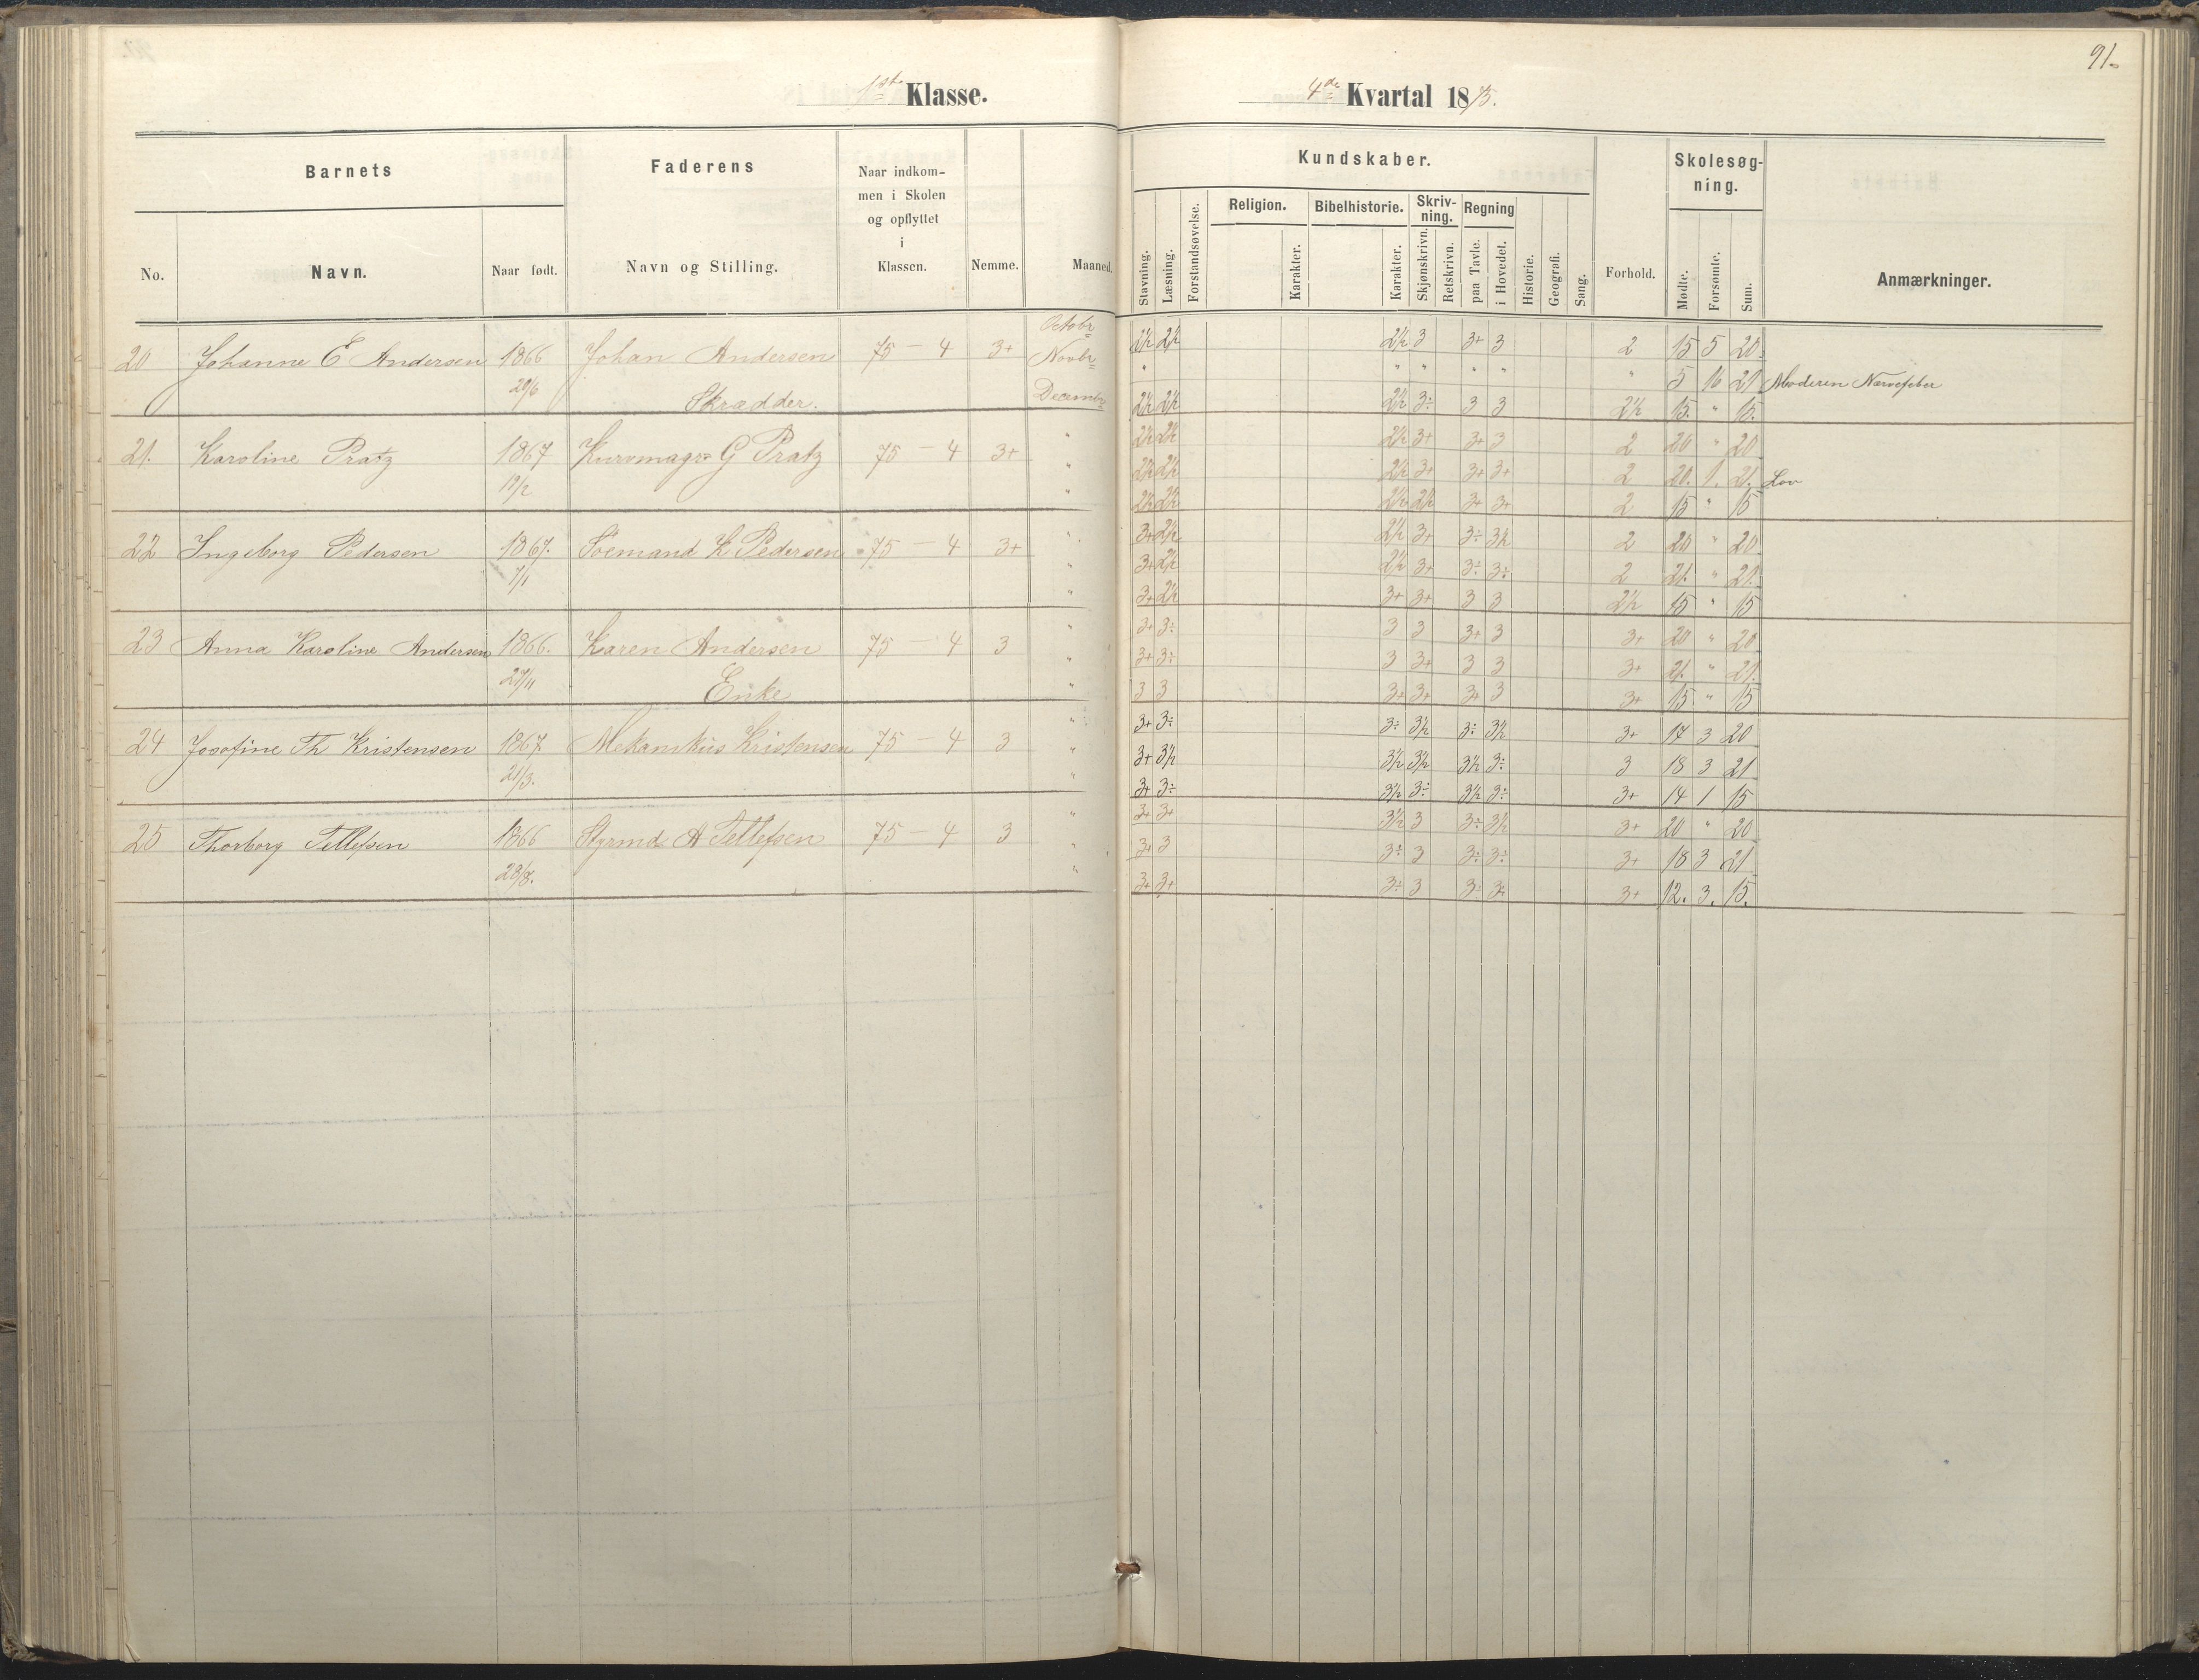 91.
1ste Klasse.
4de Kvartal 1875.
Barnets
Faderens
Naar indkom-
men i Skolen
og opflyttet
i
Klassen.
No.
Navn.
Naar født.
Navn og Stilling.
Nemme.
Maaned.
Kundskaber.
Skolesøg-
ning.
Religion.
Bibelhistorie.
Skriv-
ning.
Regning
Stavning.
Læsning.
Forstandsøvelse.
Karakter.
Karakter.
Skjønskrivn.
Retskrivn.
paa Tavle.
i Hovedet.
Historie.
Geografi.
Sang.
Forhold.
Mødte.
Forsømte.
Sum.
Anmærkninger.
Octobr 2½ 2½ 2½ 3 3+ 3 2 15 5 20.
20 Johanne E Andersen 1866 Johan Andersen 75 — 4 3+ Novbr " " " " " " 5 16 21 Moderen Nervefeber
29/6 Skrædder. Decembr 2½ 2½ 2½ 3÷ 3 3 2½ 15. " 15.
" 2½ 2½ 2½ 3+ 3+ 3 2 20 " 20
21. Karoline Pratz 1867 Kurvmagr G Pratz 75 — 4 3+ " 2½ 2½ 2½ 3+ 3+ 3+ 2 20. 1. 21. Lov
12/2 " 2½ 2½ 2½ 2½ 3+ 3+ 2 15 " 15
" 3+ 2½ 2½ 3+ 3÷ 3½ 2 20 " 20
22 Ingeborg Pedersen 1867. Söemand L Pedersen 75 — 4 3+ " 3+ 2½ 2½ 3+ 3÷ 3÷ 2 21. " 21.
7/1 " 3+ 2½ 3+ 3+ 3 3 2½ 15 " 15
" 3+ 3÷ 3 3 3+ 3 3+ 20 " 20
23 Anna Karoline Andersen 1866. Karen Andersen 75 4 3 " 3+ 3÷ 3 3+ 3 3 3+ 21. " 21.
29/11 Enke " 3 3 3+ 3+ 3+ 3 3+ 15 " 15
" 3+ 3÷ 3÷ 3½ 3÷ 3½ 3+ 17 3 20
24 Josofine Th Kristensen 1867 Mekanikus Kristensen 75 — 4 3 " 3+ 3½ 3½ 3½ 3½ 3÷ 3 18 3 21
21/3. " 3+ 3÷ 3½ 3÷ 3½ 3÷ 3+ 14 1 15
" 3+ 3+ 3½ 3 3÷ 3½ 3+ 20 " 20
25 Thorborg Tellefsen 1866 Styrmd A Tellefsen 75 — 4 3 " 3+ 3 3÷ 3 3÷ 3÷ 3+ 18 3 21
28/8. " 3+ 3+ 3÷ 3 3÷ 3÷ 3+ 12. 3. 15.